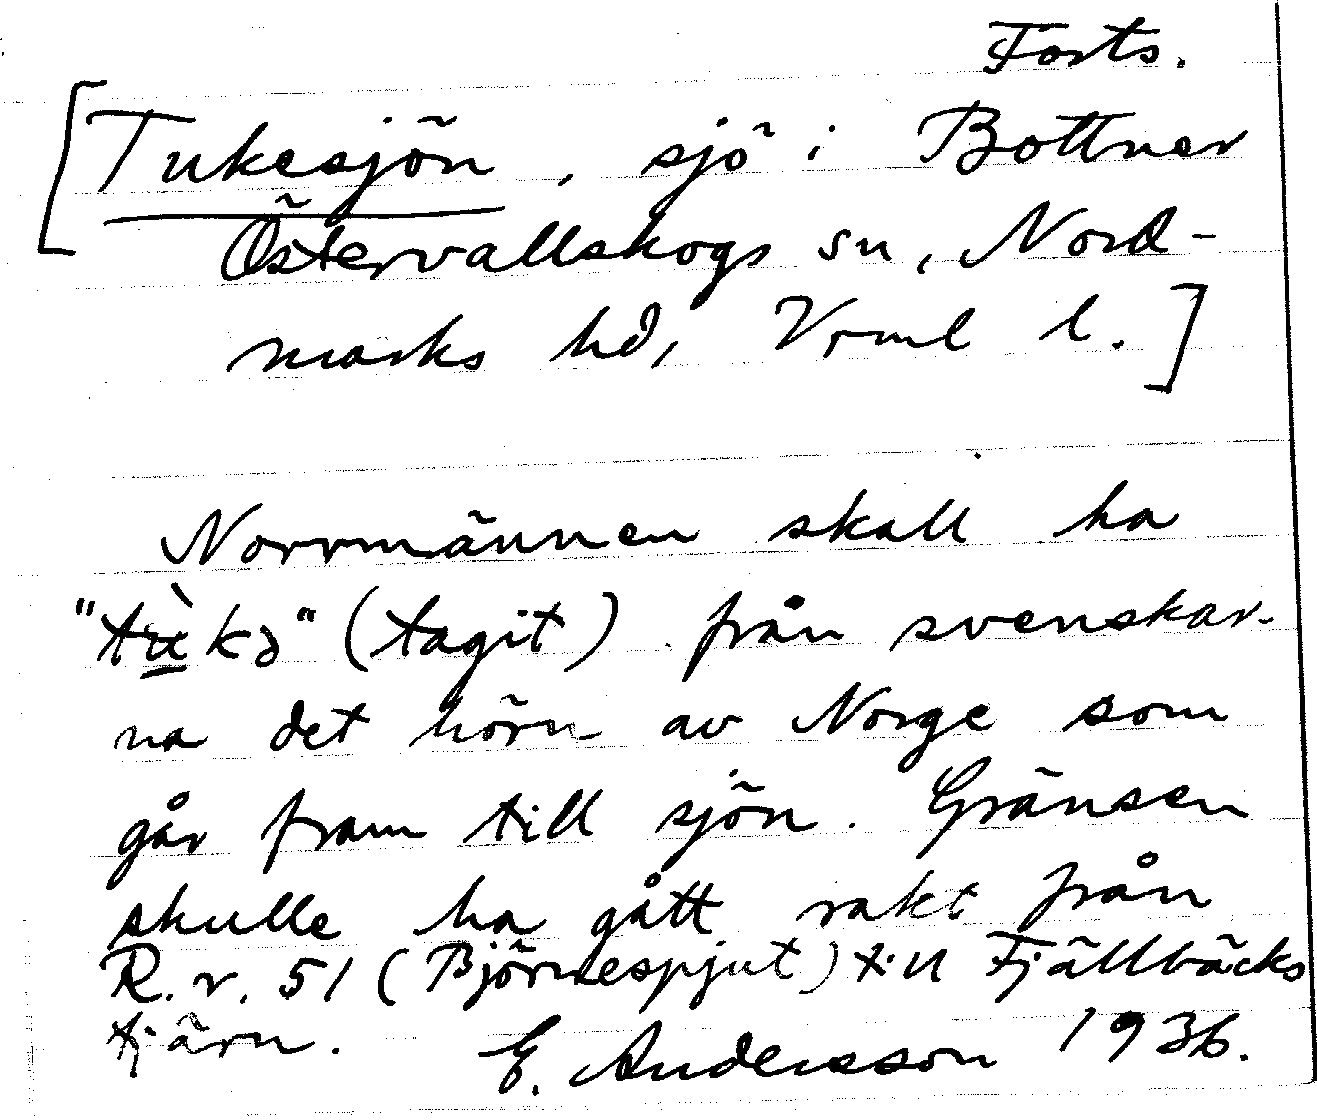 Forts.
[Tukesjön, sjö i Bottner
Östervallskogs sn, Nord-
marks hd, Vrml l.]
Norrmännen skall ha
"tùkə" (tagit) från svenskar-
na det hörn av Norge som
går fram till sjön. Gränsen
skulle ha gått rakt från
R.r. 51 (Björnespjut) till Fjällbäcks
tjärn. E. Andersson 1936.